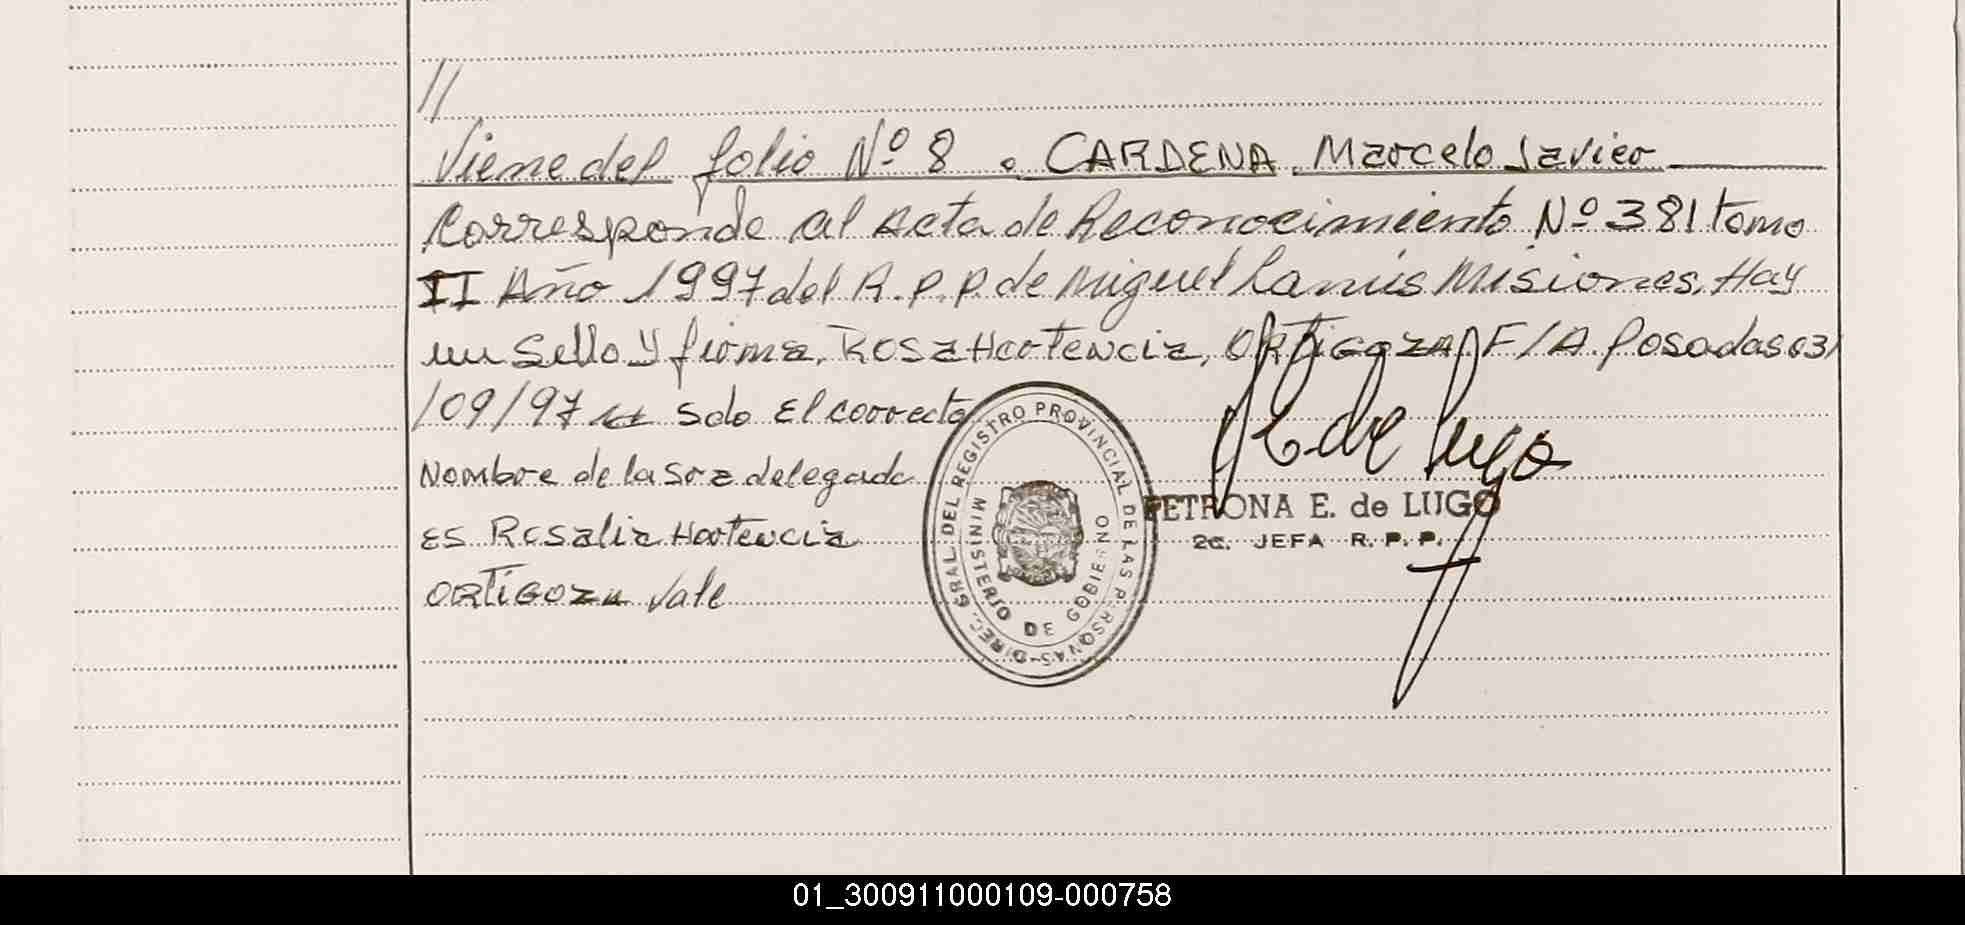 //
Viene del folio Nº 8. CARDENA, Marcelo Javier
Corresponde al Acta de Reconocimiento Nº 381 tomo
II Año 1997 del R.P.P. de Miguel Lanús Misiones. Hay
un Sello y firma, Rosa Hortencia, ORTIGOZA F/A. Posadas 03/
/09/97 Sdo El correcto
Nombre de la Sra delegada
es Rosalia Hortencia
ORTIGOZA Vale
DIREC. GRAL. DEL REGISTRO PROVINCIAL DE LAS PERSONAS
MINISTERIO DE GOBIERNO
E. de Lugo
PETRONA E. de LUGO
2a. JEFA R. P. P.
01_300911000109-000758